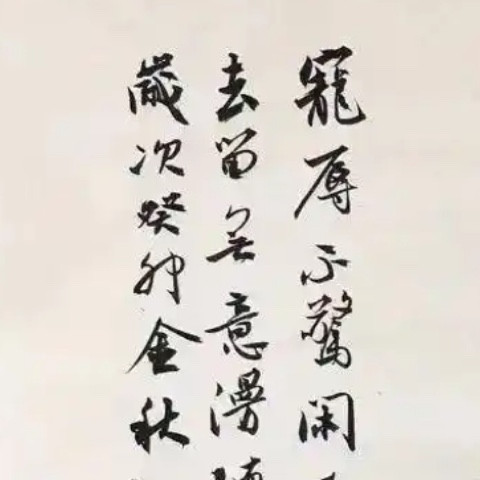 寵辱不驚閑
去留無意漫
歲次癸卯金秋